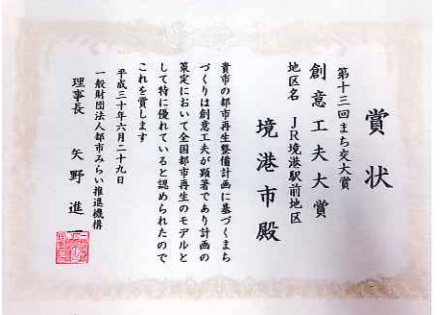 賞状
第十三回まち交大賞
創意工夫大賞
地区名　JR境港駅前地区
境港市殿
貴市の都市再生整備計画に基づくまち
づくりは創意工夫が顕著であり計画の
策定において全国都市再生のモデルと
して特に優れていると認められたので
これを賞します
平成三十年六月二十九日
一般財団法人都市みらい推進機構
理事長　矢野　進一